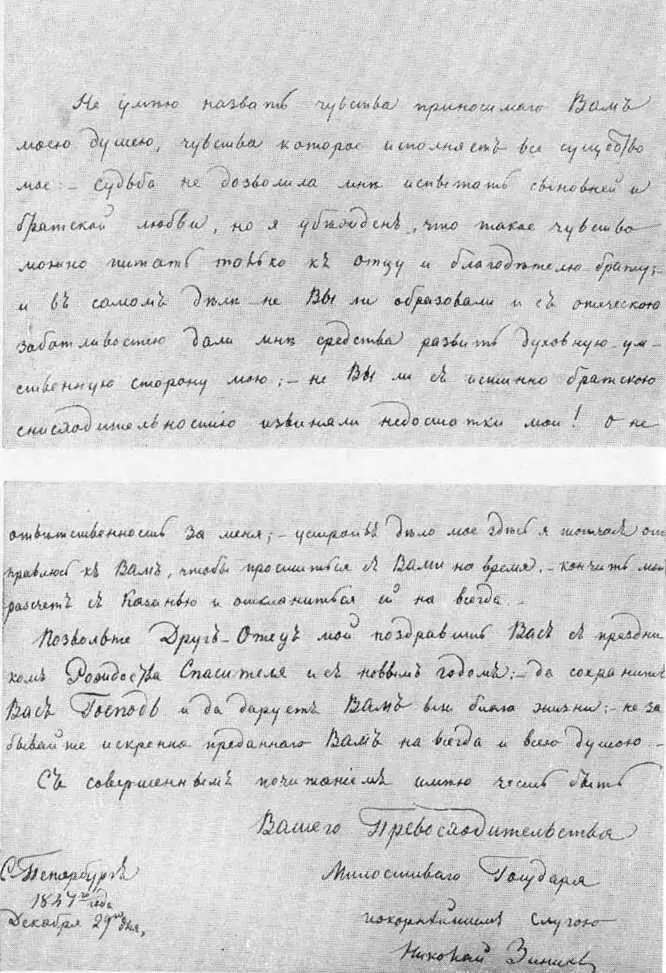 Не умѣю назвать чувства приносимаго Вамъ
моею душею, чувства которое исполняетъ все существо
мое:– судьба не дозволила мнѣ испытать сыновней и
братской любви, но я убѣжденъ, что такое чувство
можно питать только къ отцу и благодѣтелю–брату;–
и въ самомъ дѣлѣ–не Вы ли образовали и съ отеческою
заботливостею дали мнѣ средства развить духовную–ум-
ственную сторону мою;– не Вы ли съ истинно братскою
снисходительностію извиняли недостатки мои! О не
отвѣтственность за меня;– устроивъ дѣло мое здѣсь я тотчасъ от
правлюсь къ Вамъ, чтобы проститься съ Вами на время,– кончить мой
расчетъ съ Казанью и откланиться ей на всегда.–
Позвольте Другъ–Отецъ мой поздравить Васъ съ праздни-
комъ Рождества Спасителя и съ новымъ годомъ;– да сохранитъ
Васъ Господь и да даруетъ Вамъ всѣ блага жизни;– не за
бывайте искренно преданнаго Вамъ на всегда и всею душою–
Съ совершеннымъ почитаніемъ имѣю честь быть
Вашего Превосходительства
Милостиваго Государя
покорнѣйшимъ слугою
Николай Зининъ
С. Петербургъ
1847го года
Декабря 29го дня,